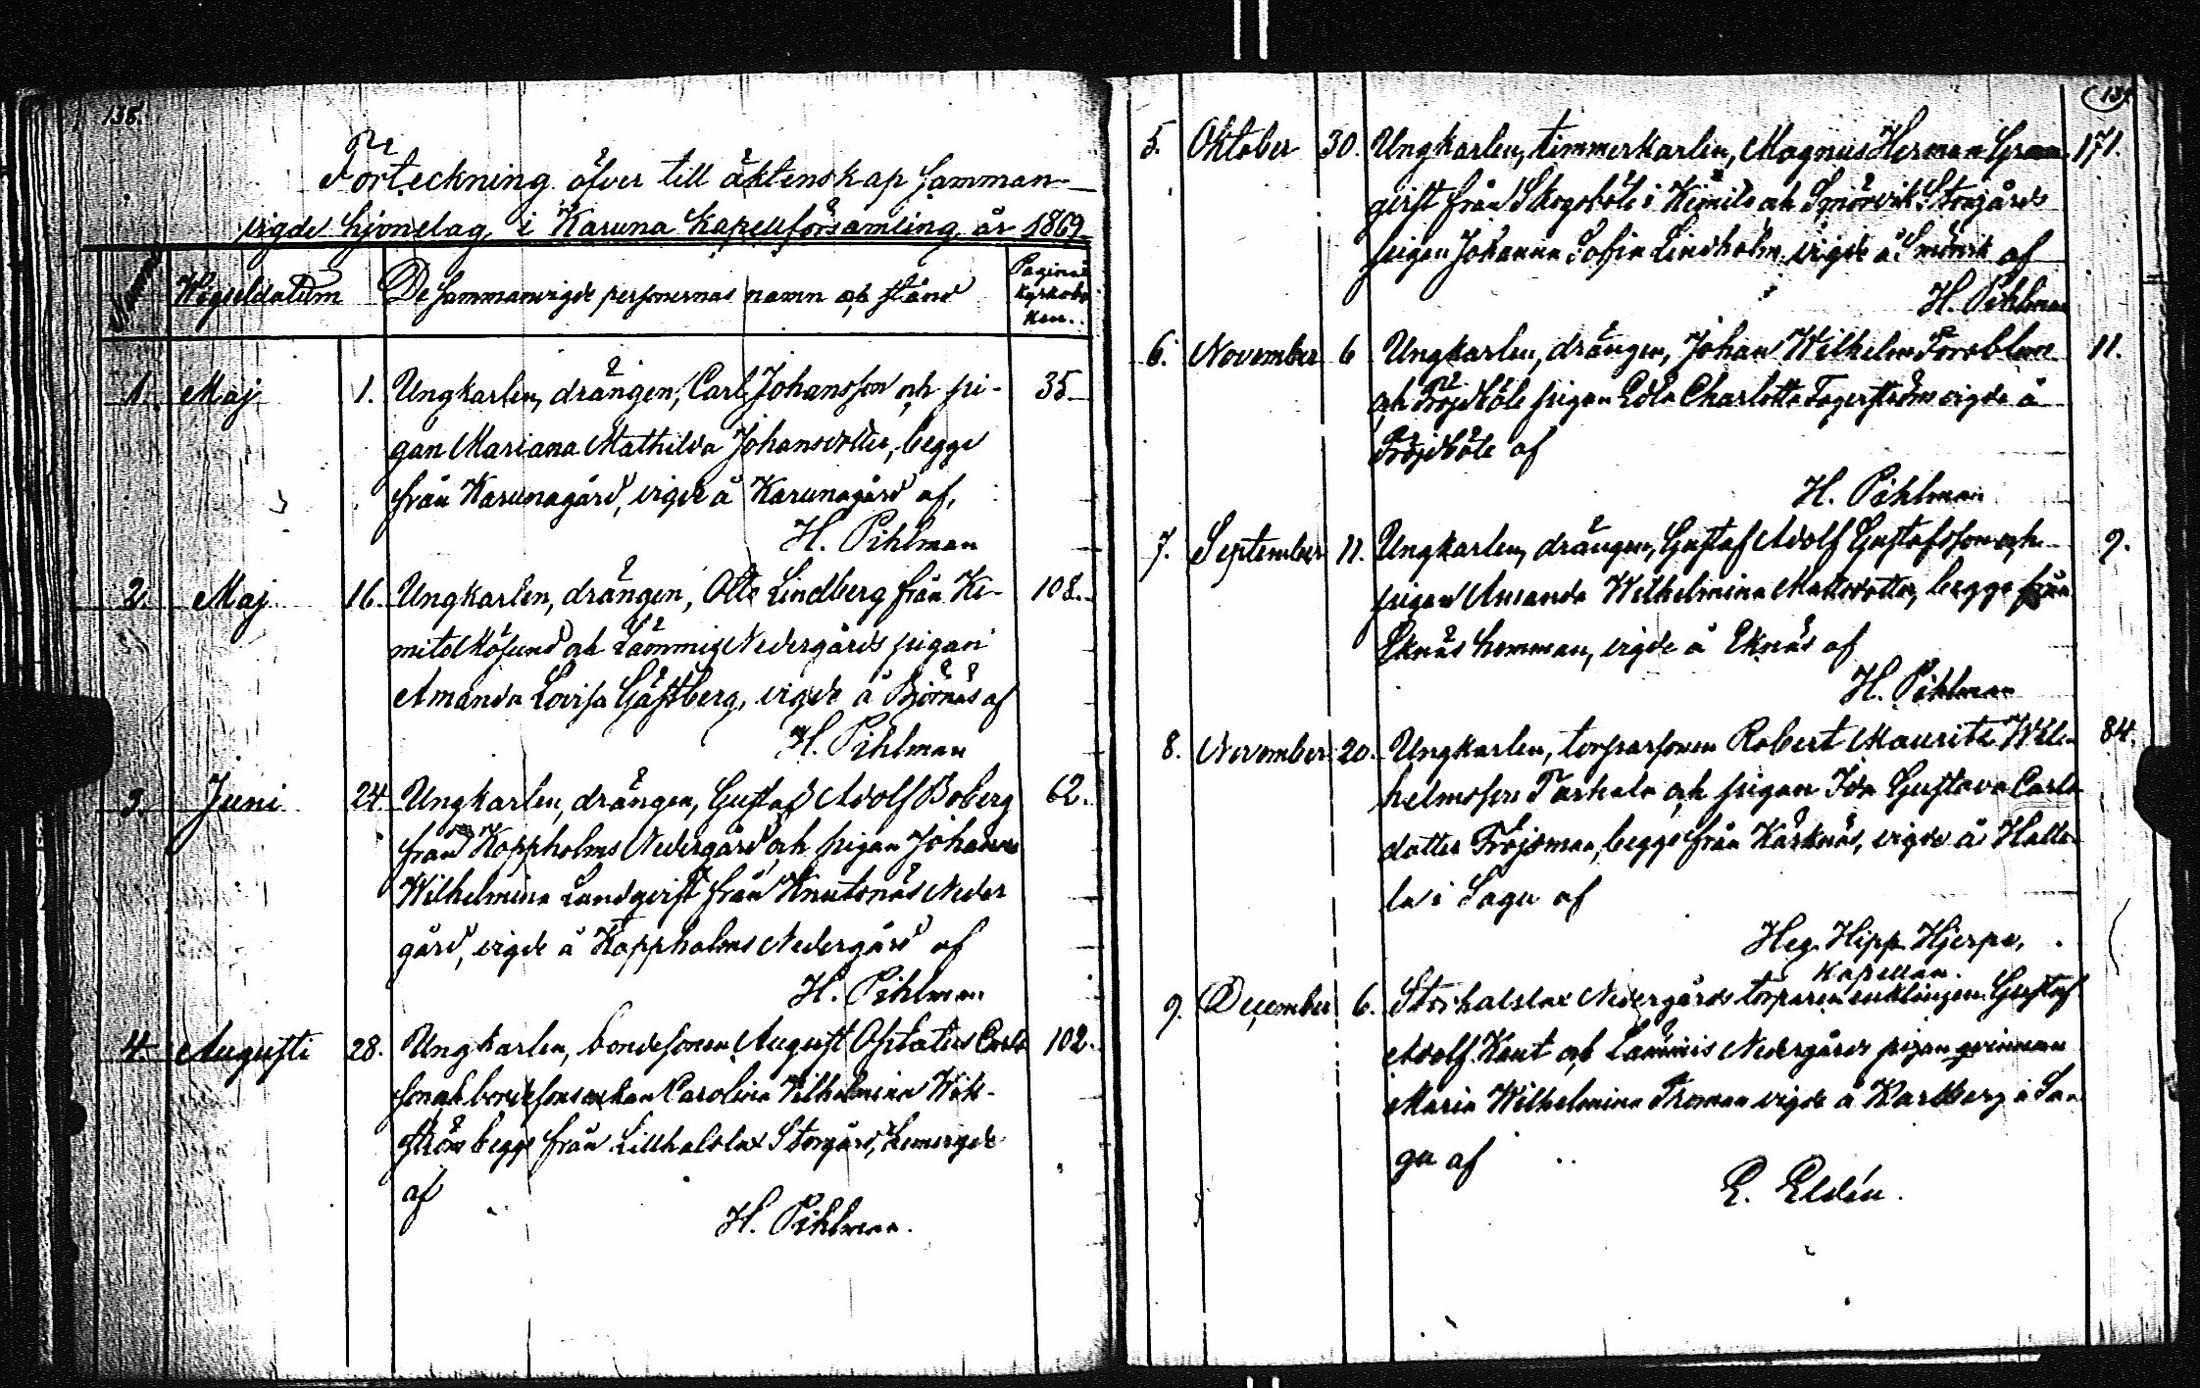 138.
Förteckning öfver till äktenskap samman-
vigde hjonelag, i Karuna kapellförsamling år 1869
Wigseldatum
De sammanvigde personernas namn och stånd
Pagina i
kyrkobo
ken.
1. Maj 1. Ungkarlen, drängen, Carl Johansson och pi- 35
gan Mariana Mathilda Johansdotter, begge
från Karunagård, vigde å Karunagård af,
H. Pihlman
2. Maj 16. Ungkarlen, drängen, Otto Lindberg från Ki- 108.
mito Mösund och Lämmis Nedergårds pigan
Amanda Lovisa Gästberg, vigde å Björnäs af
H. Pihlman
3. Juni 24. Ungkarlen, drängen, Gustaf Adolf Boberg 62.
från Koppholms Nedergård och pigan Johanna
Wilhelmina Landqvist från Knutsnäs Neder
gård, vigde å Koppholms Nedergård af
H. Pihlman
4. Augusti 28. Ungkarlen, bondesonen August Optatus Carls 102.
son och Carolina Wilhelmina Wik-
ström begge från Lillhalslax Storgård,
af
H. Pihlman.
139.
5. Oktober 30. Ungkarlen, timmerkarlen, Magnus Herman Gran 171.
qvist från Skogsböle i Kimito och Smörvik Storgårds
pigan Johanna Sofia Lindholm, vigde å Smörvik af
H. Pihlman
6. November 6 Ungkarlen, drängen, Johan Wilhelm Forsblom 11.
och Fröjdböle pigan Edla Charlotta Fagerström vigde å
Fröjdböle af
H. Pihlman
7. September 11. Ungkarlen, drängen, Gustaf Adolf Gustafsson och 9.
pigan Amanda Wilhelmina Mattsdotter, begge från
Eknäs hemman, vigde å Eknäs af
H. Pihlman
8. November 20. Ungkarlen, torparsonen Robert Maurits Wil- 84.
helmsson Tarkala och pigan Ida Gustava Carls
dotter Fröjsman, begge från Kärknäs, vigde å Halle
la i Sagu af
Heg. Hipp. Hjerpe,
Kapellan.
9. December 6. Storhalslax Nedergårds torparen enklingen Gustaf
Adolf Knut och Lämmis Nedergårds pigan qvinnan
Maria Wilhelmina Thoman vigde å Karlberg i Sa-
gu af
E. Eldén.